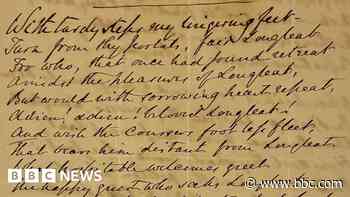 With tardy steps my lingering feet -
Turn from thy portals, fair Longleat
For who, that once had found retreat
Amidst the pleasures of Longleat,
But would with sorrowing heart repeat,
Adieu, adieu! beloved Longleat!
And with the Coursers foot less fleet,
That bears him distant from Longleat.
What hospitable welcomes greet
The happy guest who seeks
BBC NEWS
www.bbc.com